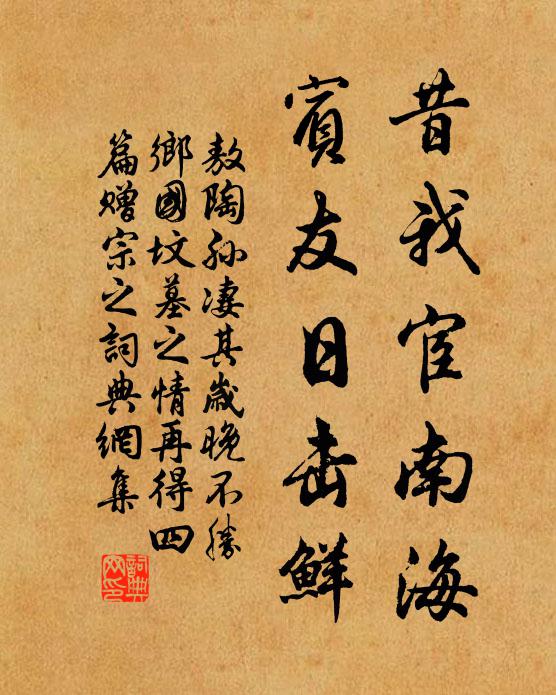 昔我宦南海
賓友日击鮮
敖陶孙凄其歲晚不勝
鄉國坟墓之情再得四
篇赠宗之詞典網集
詞典网印